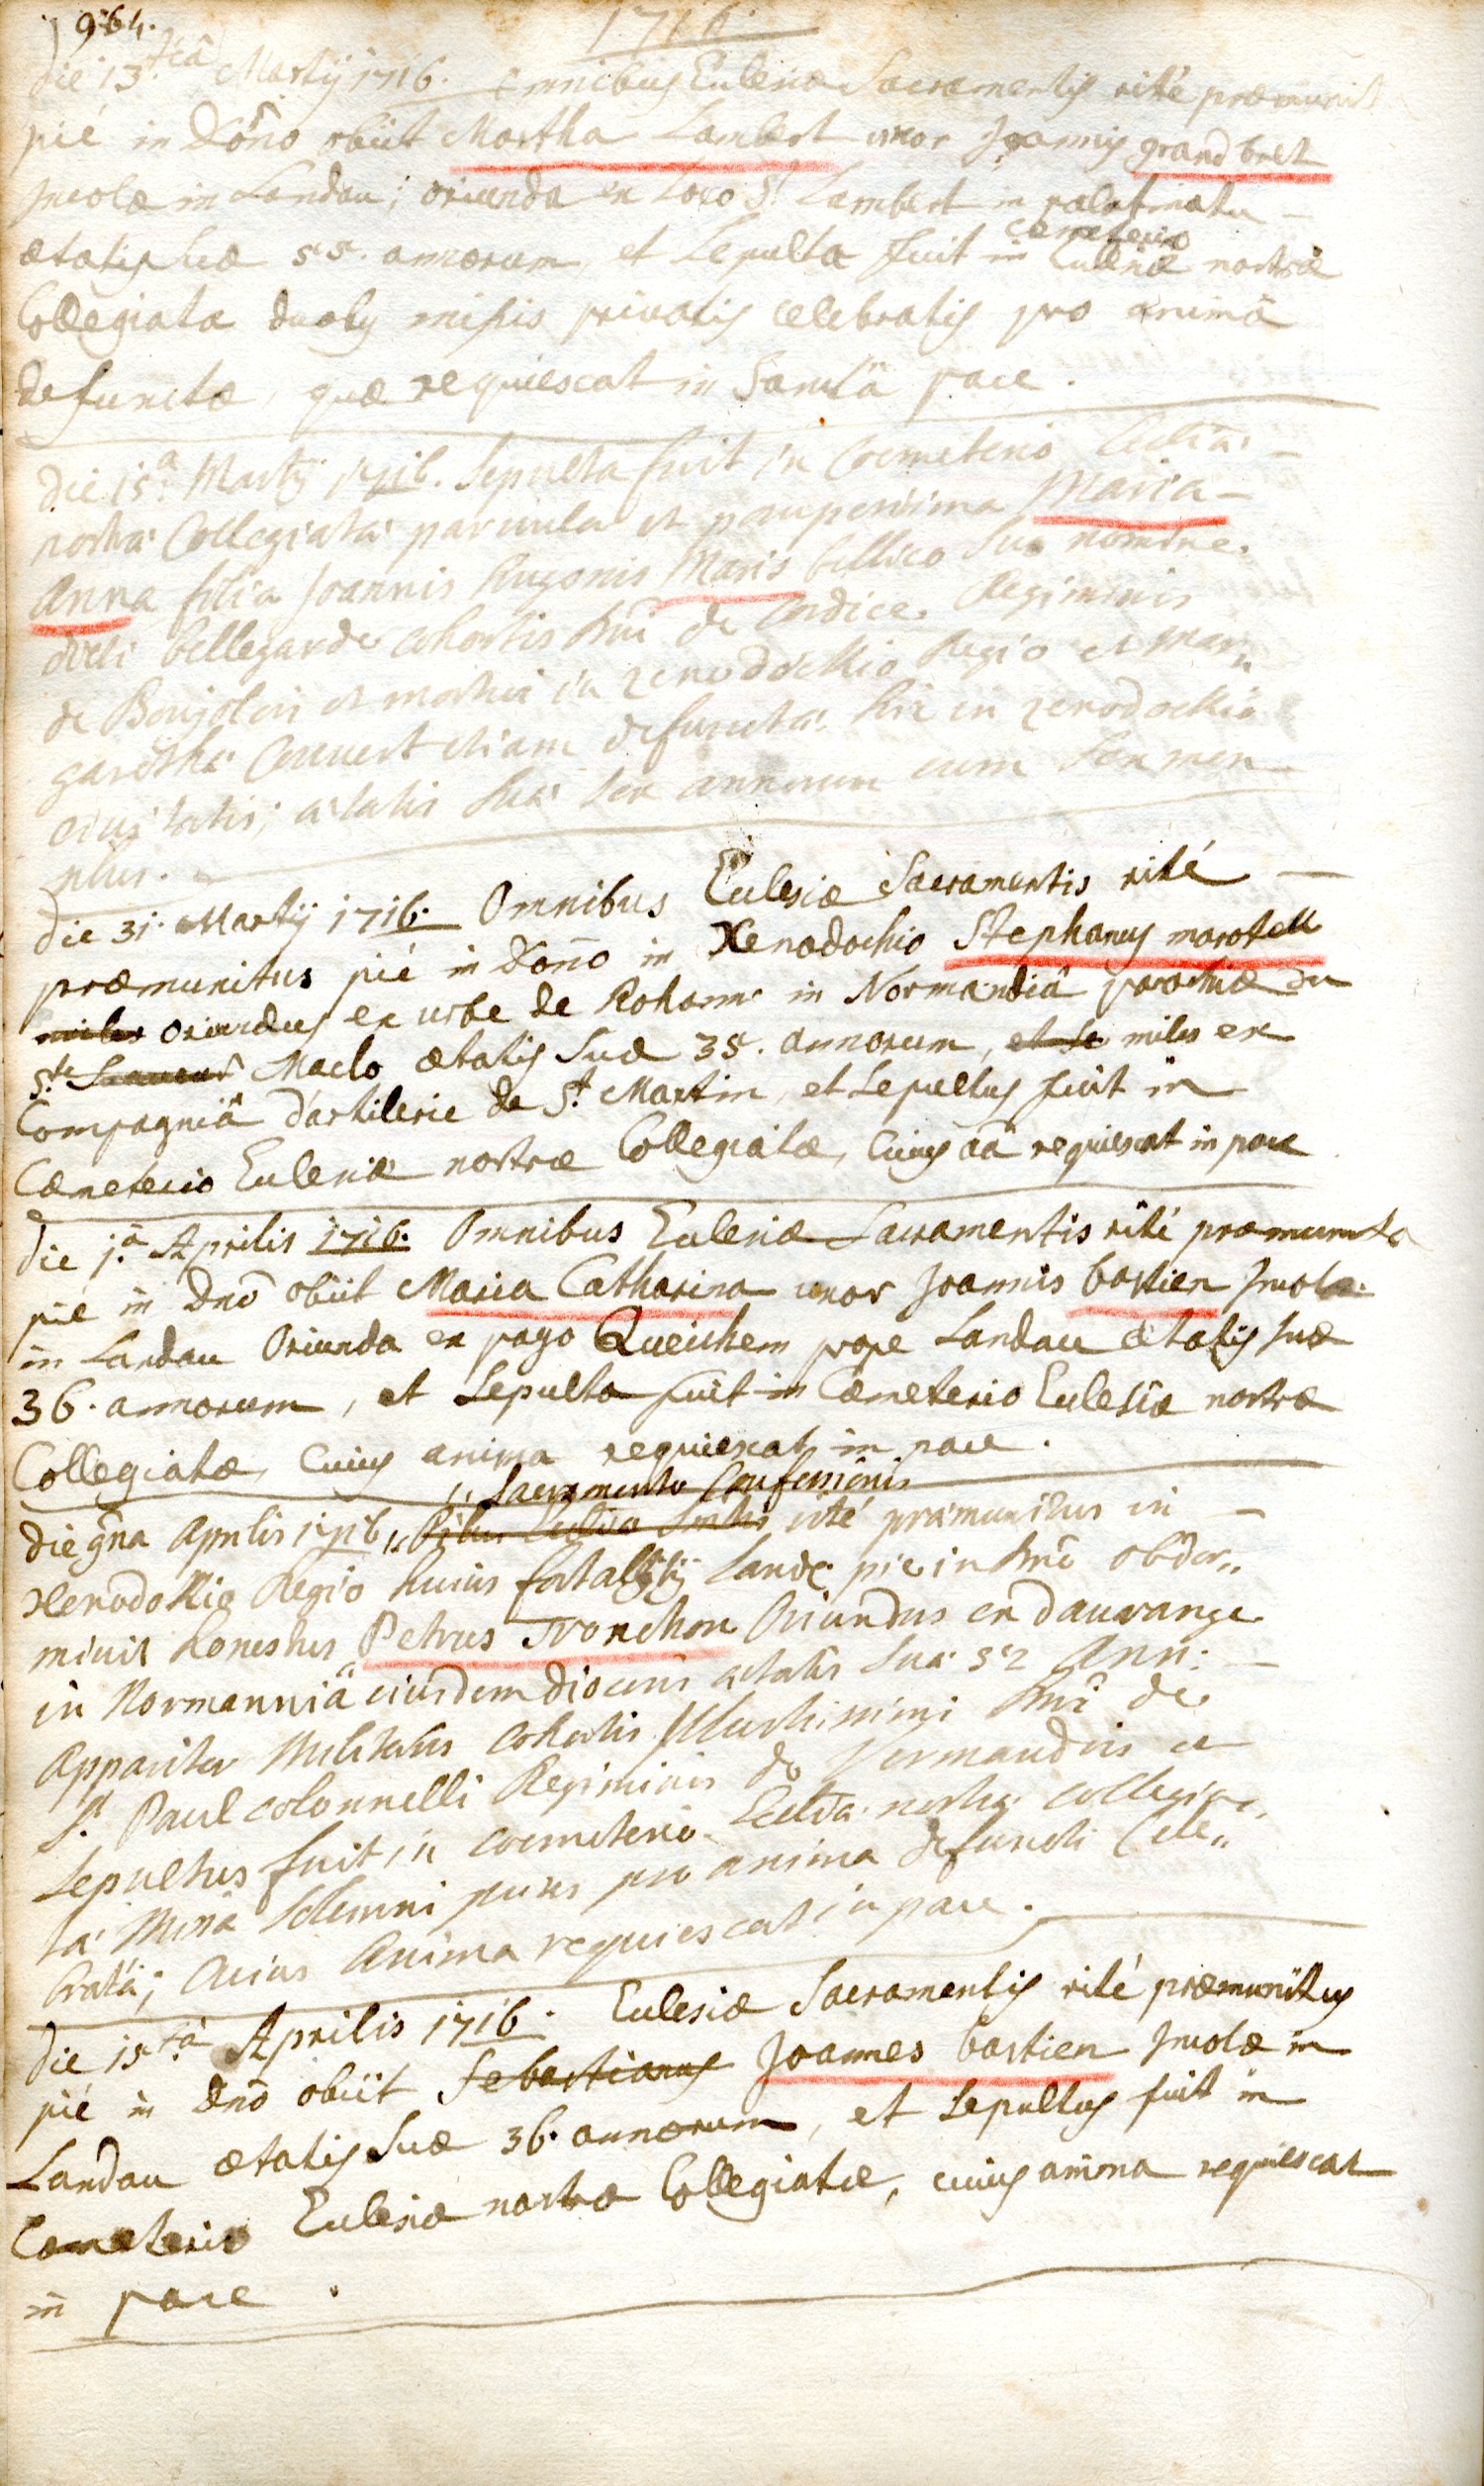 964.
1716.
die 13.tiâ Martij 1716. omnibus Ecclesiæ Sacramentis rité præmunita
pié in Dōno obiit Martha Lambert uxor Joannis grand bret
Jncolæ in Landau; oriunda ex Loco St Lambert in palatinatu
ætatis suæ 55. annorum, et sepulta fuit in cæmeterio Ecclesiæ nostræ
Collegiata duobus missis privatis celebratis pro animâ
defunctæ, quæ requiescat in Sanctâ pace.
die 15.a Martij 1716. Sepulta fuit in Coemeterio Ecclīæ
nostræ Collegiatæ parvula et pauperrima Maria
Anna filia Joannis Hugonis Maris bellico suo nomine
dicti bellegarde cohortis Dni de Regiminis
de Beujolois et mortui in xenodochio Regio et Mar„
garethæ etiam defunctæ hic in xenodochio
ætatis suæ sex annorum cum sex men
plus.
die 31. Martij 1716. Omnibus Ecclesiæ Sacramentis rité
præmunitus pié in Dōno in Xenodochio Stephanus marotell
miles oriundus ex urbe de Rohann in Normandiâ parochiæ du
Ste Sauveur Maclo ætatis suæ 35. annorum, et se miles ex
Compagniâ d'artilerie de St Martin, et sepultus fuit in
Cæmeterio Ecclesiæ nostræ Collegiatæ, Cuius aā requiescat in pace
die 1.â Aprilis 1716. Omnibus Ecclesiæ Sacramentis rité præmunita
pié in Dnō obiit Maria Catharina uxor Joannis bastien Jncolæ
in Landau Oriunda ex pago Queichem prope Landau ætatis suæ
36. annorum, et sepulta fuit in Cæmeterio Ecclesiæ nostræ
Collegiatæ, Cuius anima requiescat in pace.
„ Sacramento Confessionis
die 9na Aprilis 1716 „ rité præmunitus in
Xenodochio Regio huius fortalitij pie in Dnō obdor„
mivit honestus Petrus Tronchon Oriundus ex dauvrange
in Normanniâ eiusdem diocesis ætatis suæ 32 Ann:
Apparitor Militaris cohortis Illustrissimi Dni de
St Paul colonnelli Regiminis de Vermandois et
Sepultus fuit in coemeterio Ecclīæ nostræ collegia„
tæ Missâ Solemni prius pro anima defuncti Cele„
bratâ; Cuius Anima requiescat in pace.
Die 15.tâ Aprilis 1716. Ecclesiæ Sacramentis rité præmunitus
pié in Dnō obiit Sebastianus Joannes bastien Jncolæ in
Landau ætatis suæ 36. annorum, et sepultus fuit in
Cæmeterio Ecclesiæ nostræ Collegiatæ, cuius anima requiescat
in pace.